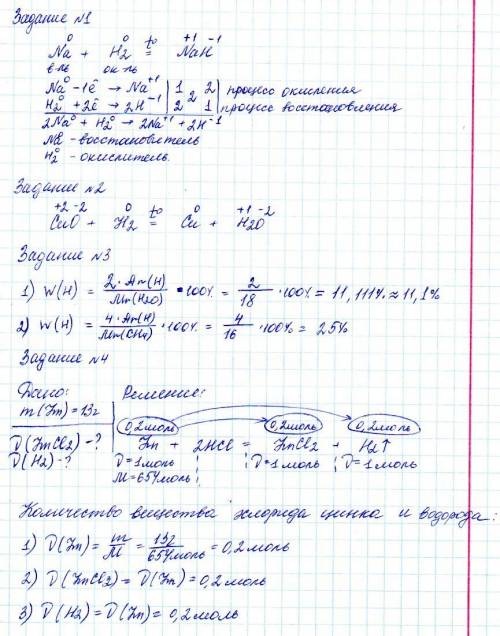 Задание №1
0 0 +1 -1
Na + H2 t° = NaH
в-ль ок-ль
Na⁰ -1ē → Na⁺¹ | 1 | 2 | 2 | процесс окисления
H2⁰ +2ē → 2H⁻¹ | 2 | | 1 | процесс восстановления
2Na⁰ + H2⁰ → 2Na⁺¹ + 2H⁻¹
Na⁰ - восстановитель
H2⁰ - окислитель.
Задание №2
+2 -2 0 0 +1 -2
CuO + H2 t° = Cu + H2O
Задание №3
1) W(H) = 2·Ar(H)/Mr(H2O) · 100% = 2/18 · 100% = 11,111% ≈ 11,1%
2) W(H) = 4·Ar(H)/Mr(CH4) · 100% = 4/16 · 100% = 25%
Задание №4
Дано: Решение:
m(Zn) = 13г
0,2моль 0,2моль 0,2моль
ν(ZnCl2) - ? Zn + 2HCl = ZnCl2 + H2↑
ν(H2) - ? ν=1моль ν=1моль ν=1моль
M=65г/моль
Количество вещества хлорида цинка и водорода:
1) ν(Zn) = m/M = 13г/65г/моль = 0,2моль
2) ν(ZnCl2) = ν(Zn) = 0,2моль
3) ν(H2) = ν(Zn) = 0,2моль